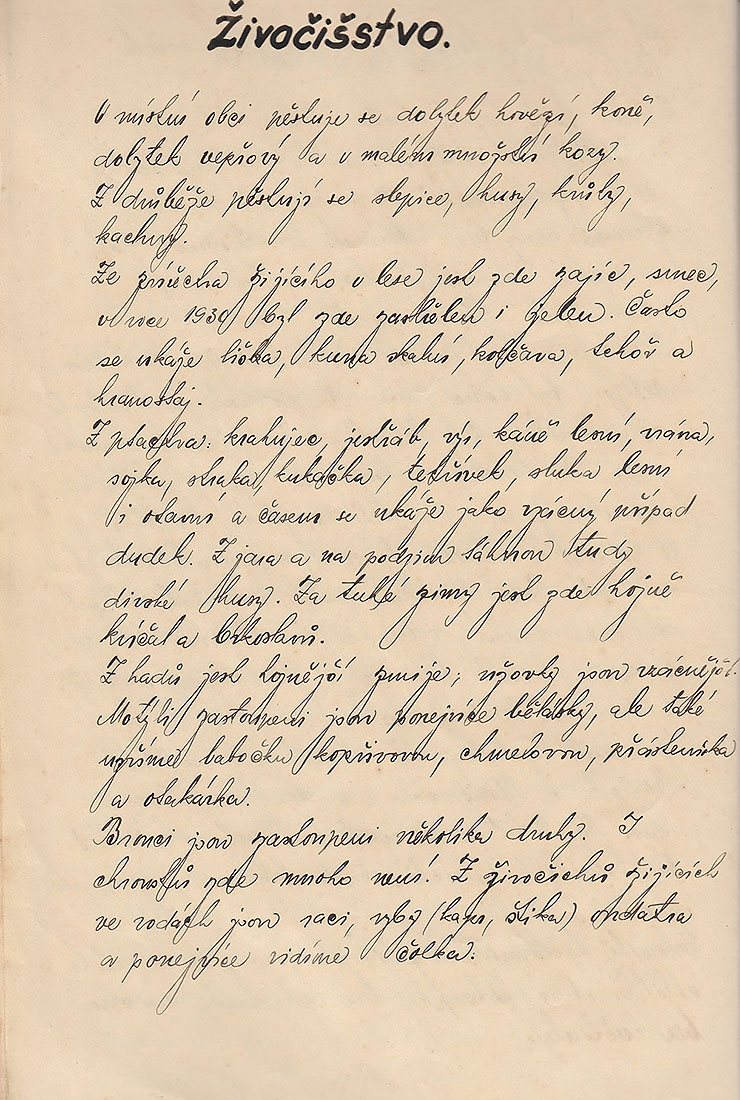 Živočišstvo.
V místní obci pěstuje se dobytek hovězí, koně,
dobytek vepřový a v malém množství kozy.
Z drůběže pěstují se slepice, husy, krůty,
kachny.
Ze zvířectva žijícího v lese jest zde zajíc, srnec,
v roce 1930 byl zde zastřelen i jelen. Často
se ukáže liška, kuna skalní, kolčava, tchoř a
hranostaj.
Z ptactva: krahujec, jestřáb, výr, káně lesní, vrána,
sojka, straka, kukačka, tetřívek, sluka lesní
i otavní a časem se ukáže jako vzácný případ
dudek. Z jara a na podzim táhnou tudy
divoké husy. Za tuhé zimy jest zde hojně
kvíčal a brkoslavů.
Z hadů jest hojnější zmije; užovky jsou vzácnější.
Motýli zastoupeni jsou ponejvíce bělásky, ale také
uzříme babočku kopřivovou, chmelovou, přástevníka
a otakárka.
Brouci jsou zastoupeni několika druhy. I
chroustů zde mnoho není. Z živočichů žijících
ve vodách jsou raci, ryby (kapr, štika) ondatra
a ponejvíce vidíme čolka.